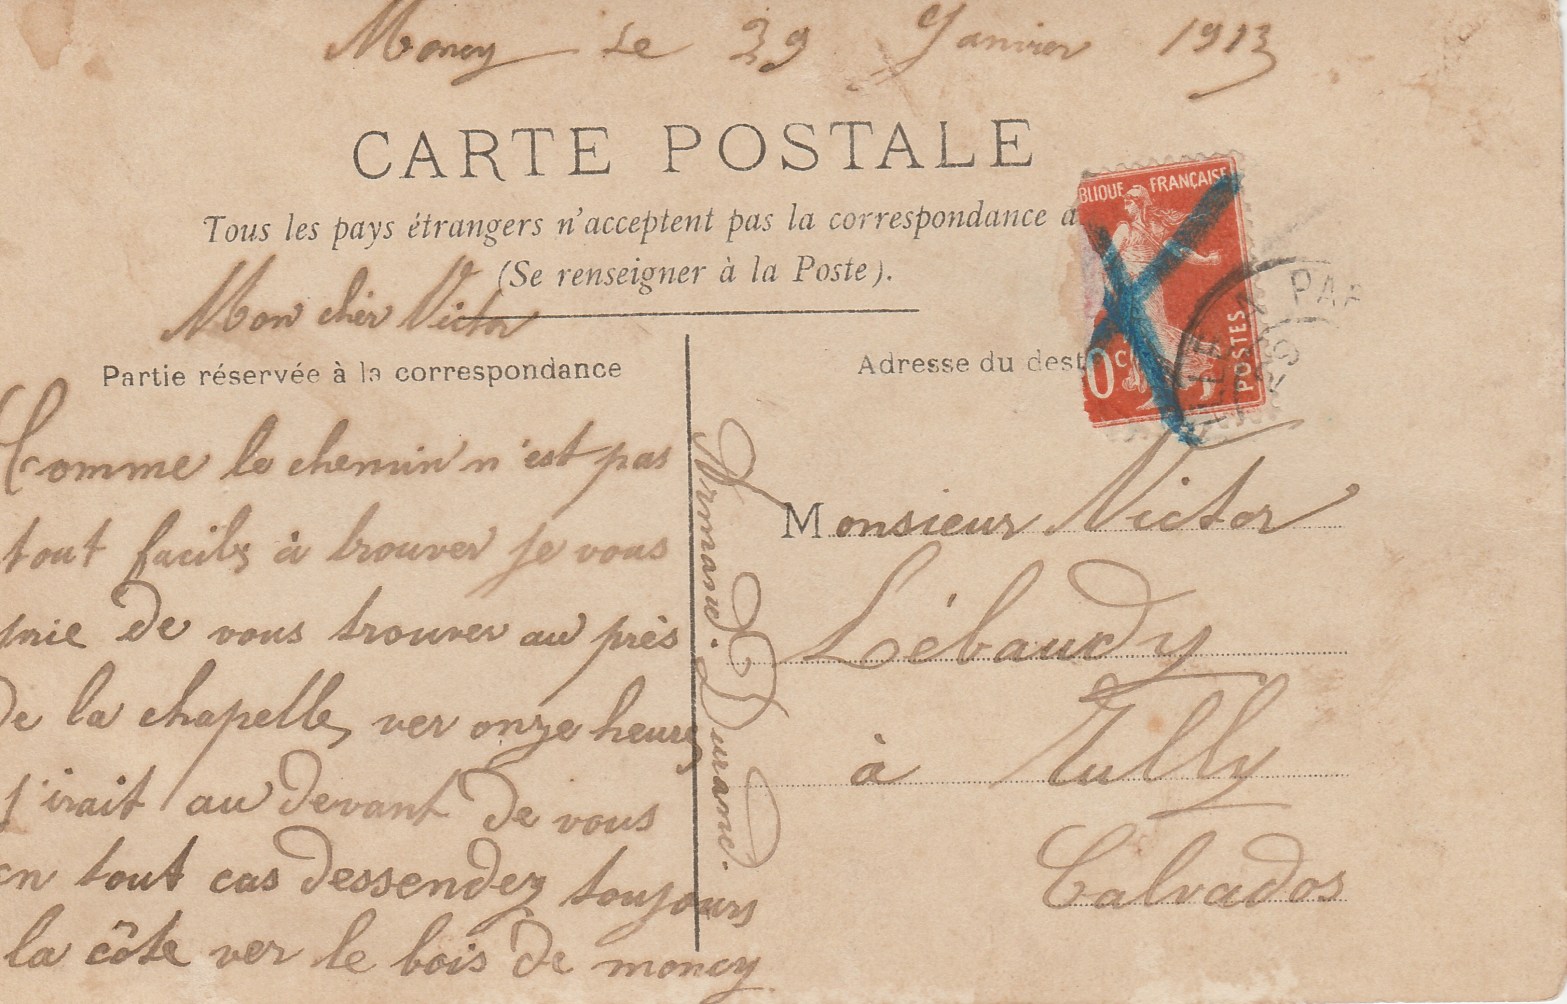 Moncy le 29 Janvier 1913
CARTE POSTALE
Tous les pays étrangers n'acceptent pas la correspondance a
(Se renseigner à la Poste).
Mon cher Victor
Partie réservée à la correspondance
Comme le chemin n'est pas
tout facile à trouver je vous
prie de vous trouver au près
De la chapelle, ver onze heures
j'irait au Devant De vous
en tout cas Dessendez toujours
la côte ver le bois De moncy
Armand. Durand.
BLIQUE FRANÇAISE
0c
POSTES
PAR
Adresse du dest
Monsieur Victor
Lébaudy
à Tully
Calvados